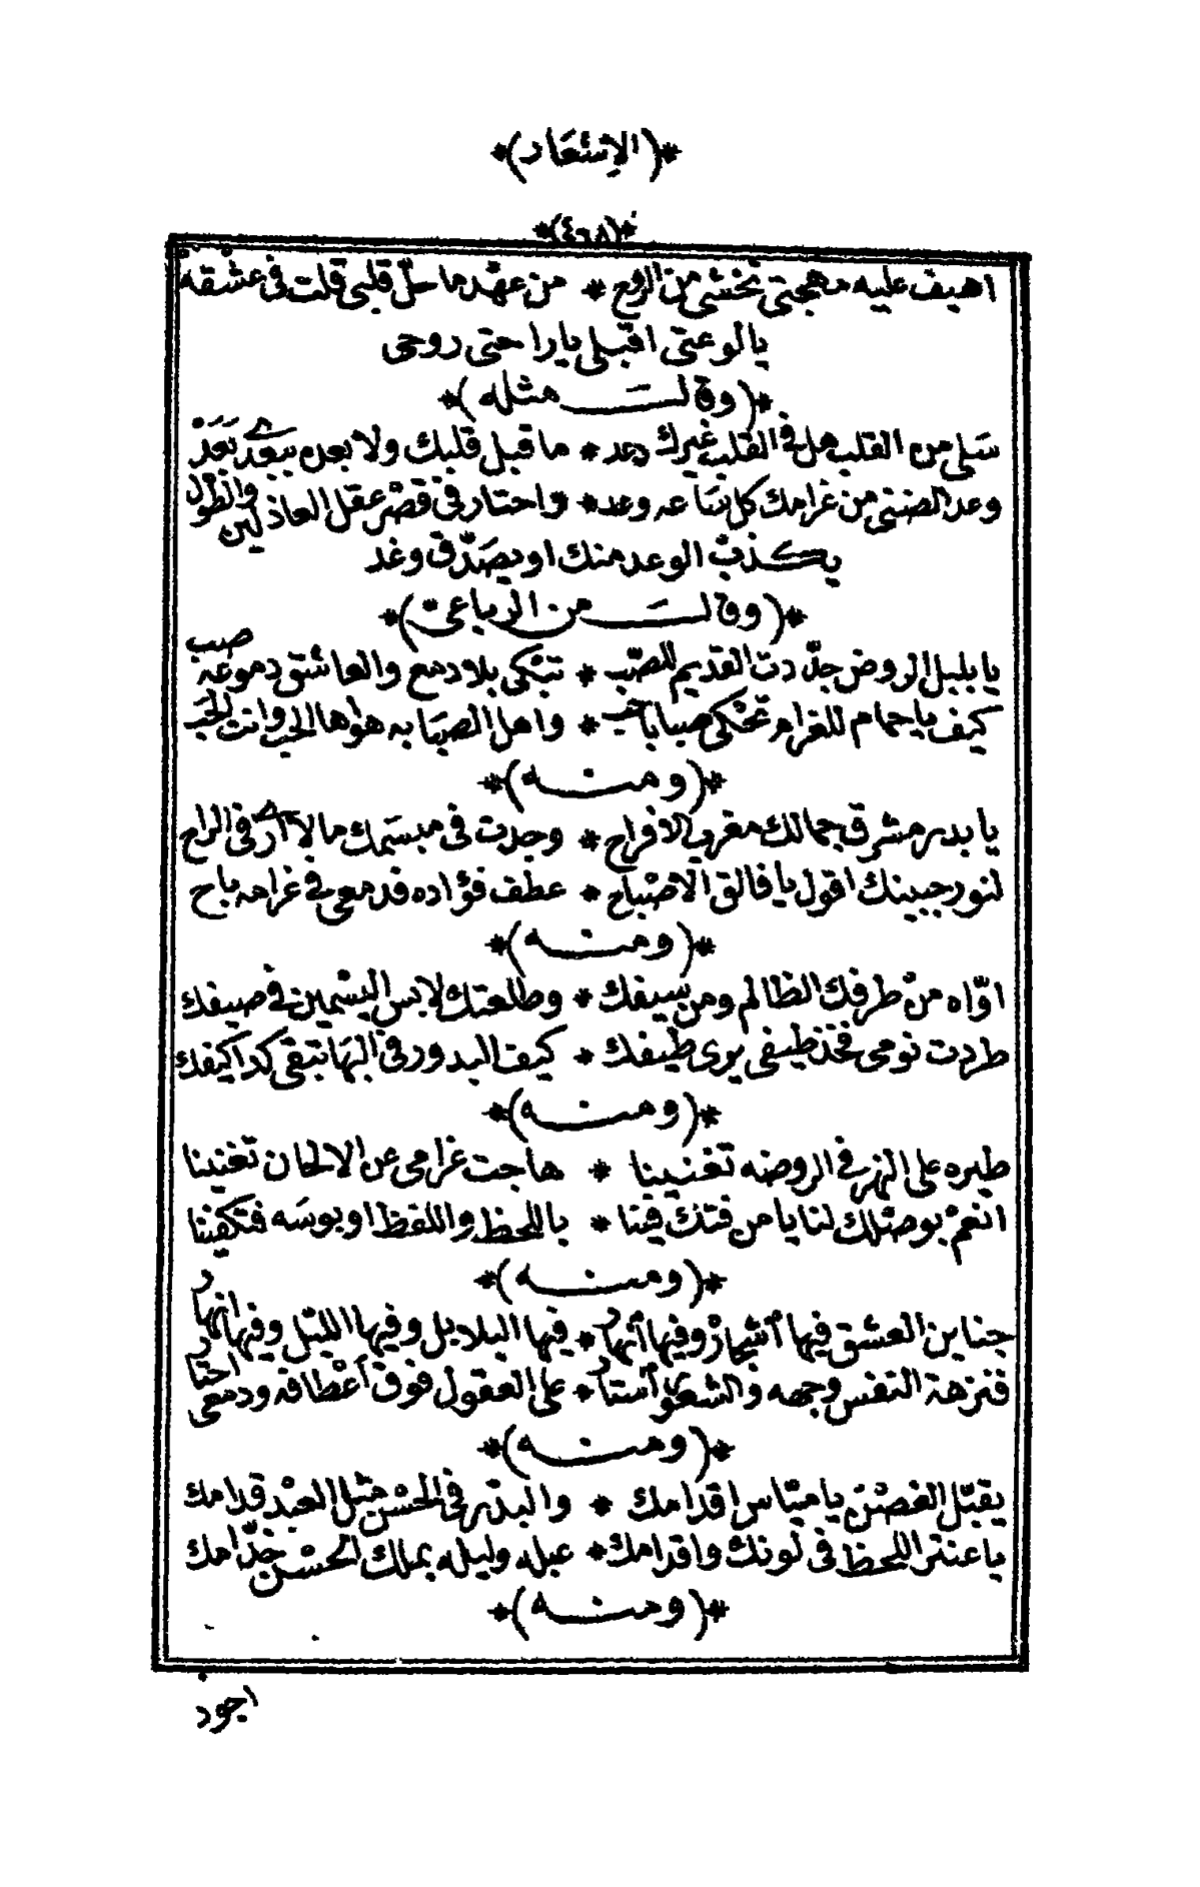 *(الإسْعَاد)*
*(٤٦٨)*
اهيف عليه مهجتى تخشى من الروح * من عهد ما حلّ قلبى قلت فى عشْقهْ
يالوعتى اقبلى ياراحتى روحى
*(وقالـــت مثله)*
سَلى من القلب هل فى القلب غيرك دعد * ما قبل قلبك ولا بعده يبعدى بَعَدْ
وعد الضنى من غرامك كل سَاعه وعد * واحتار فى قصْر عقل العاذلين والطول
يكذبْ الوعد منك او يصَدّق وغد
*(وقالـــت من الرباعى)*
يا بلبل الروض جدّدت القديم للصّب * تبْكى بلا دمع والعاشق دموعه صب
كيف يا حمام للغرام تحْكى صبابا * واهل الصبَابه هواها الحب وانت الحَب
*(ومنـــه)*
يا بدر مشرق جمالك مغرب الافراح * وجدت فى مبسَمك مالا أرى فى الراح
لنور جبينك اقول يا فالق الاصْباح * عطف فؤاده فدمعى فى غرامه باح
*(ومنـــه)*
اوّاه منْ طرفك الظالم ومن سيفك * وطلعتك لابس اليسْمين فى صيفك
طردت نومى فخذ طيفى يرى طيفك * كيف البدور فى البهَا تبقى كدا كيفك
*(ومنـــه)*
طيره على النهر فى الروضه تغنينا * هاجت غرامى عن الالحان تغنينا
انعمْ بوصْلك لنا يا من فتك فينا * باللحظ واللفظ او بوسَه فتكفينا
*(ومنـــه)*
جناين العشق فيها أشجارْ وفيها أنهار * فيها البلابل وفيها الليْل وفيها انهار
فنزهة النفس وجهه والشعور أستار * على العقول فوق أعْطافه ودمعى احتار
*(ومنـــه)*
يقبّل الغصْن يا ميّاس اقدامك * والبدْر فى الحسْن مثل العبْد قدامك
يا عنتر اللحظ فى لونك واقدامك * عبله وليله بملك الحسْن خدّامك
*(ومنـــه)*
اجود